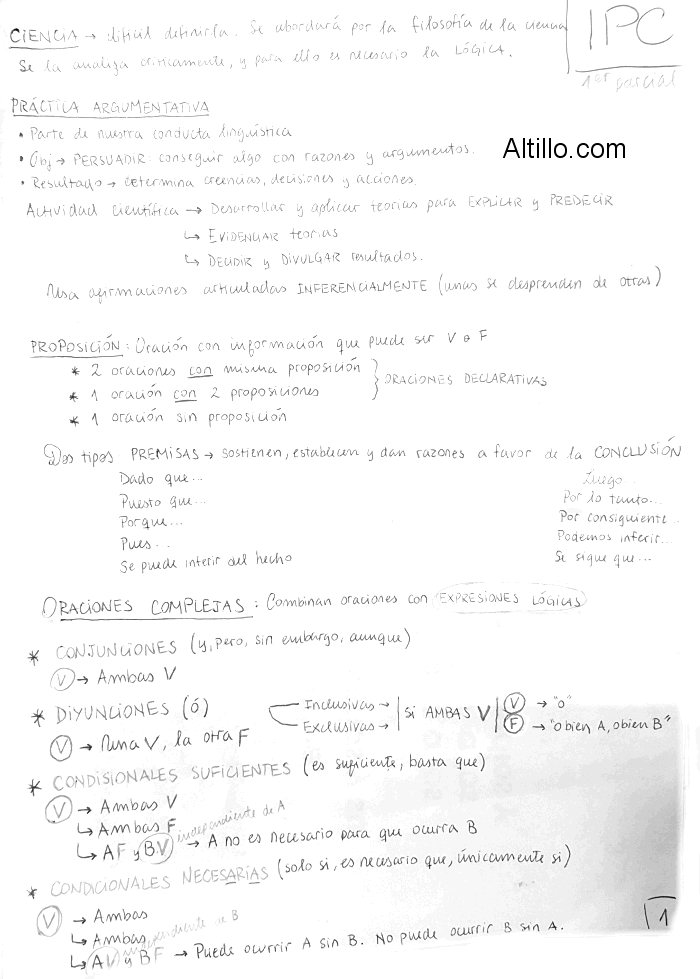 CIENCIA → dificil definirla. Se abordará por la filosofía de la ciencia
Se la analiza criticamente, y para ello es necesario la LÓGICA.
IPC
1er parcial
PRÁCTICA ARGUMENTATIVA
• Parte de nuestra conducta lingüística
• Obj → PERSUADIR: conseguir algo con razones y argumentos.
Altillo.com
• Resultado → determina creencias, decisiones y acciones.
Actividad científica → Desarrollar y aplicar teorias para EXPLICAR y PREDECIR
↳ EVIDENCIAR teorías
↳ DECIDIR y DIVULGAR resultados.
Usa afirmaciones articuladas INFERENCIALMENTE (unas se desprenden de otras)
PROPOSICIÓN: Oración con información que puede ser V o F
* 2 oraciones con misma proposición
* 1 oración con 2 proposiciones
} ORACIONES DECLARATIVAS
* 1 oración sin proposición
Dos tipos PREMISAS → sostienen, establecen y dan razones a favor de la CONCLUSIÓN
Dado que... Luego...
Puesto que... Por lo tanto...
Porque... Por consiguiente...
Pues... Podemos inferir...
Se puede inferir del hecho Se sigue que...
ORACIONES COMPLEJAS: Combinan oraciones con EXPRESIONES LÓGICAS
* CONJUNCIONES (y, pero, sin embargo, aunque)
V → Ambas V
* DIYUNCIONES (ó) Inclusivas → | SI AMBAS V | V → "o"
Exclusivas → F → "o bien A, o bien B"
V → Una V, la otra F
* CONDISIONALES SUFICIENTES (es suficiente, basta que)
V → Ambas V
↳ Ambas F
independiente de A
↳ AF y BV → A no es necesario para que ocurra B
* CONDICIONALES NECESARIAS (solo si, es necesario que, únicamente si)
V → Ambas
↳ Ambas
independiente de B
↳ AV y BF → Puede ocurrir A sin B. No puede ocurrir B sin A.
1